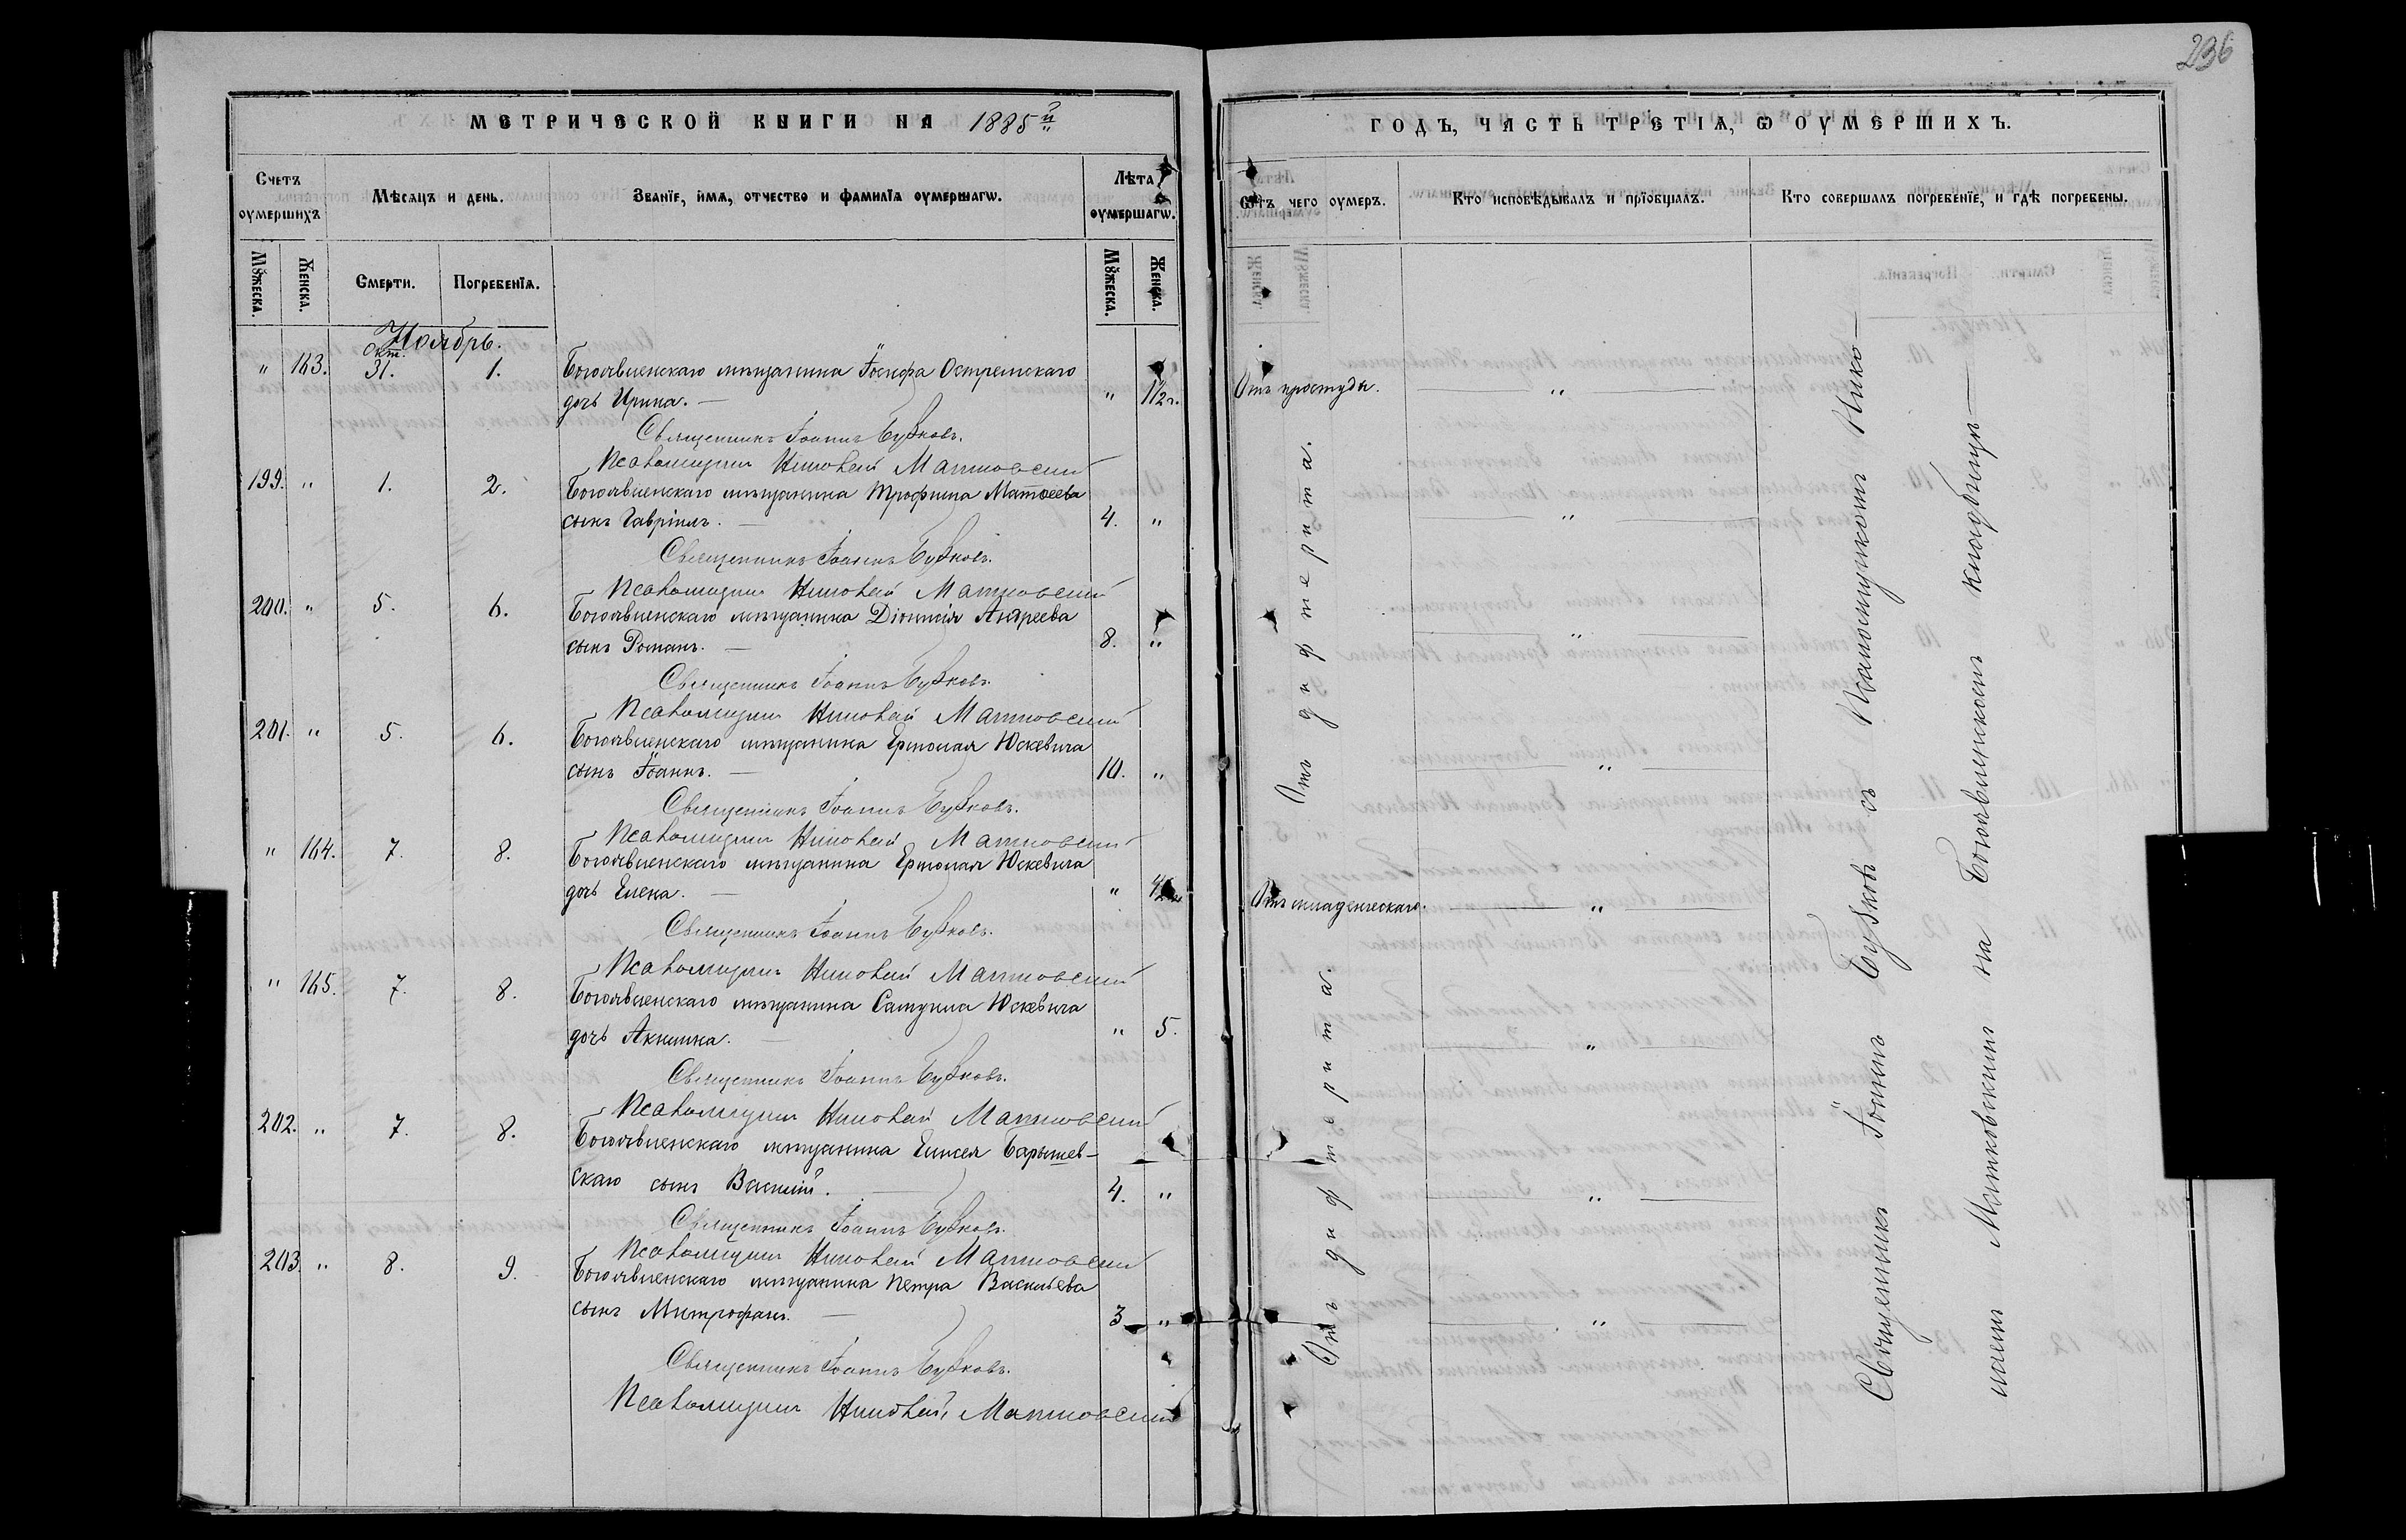 236
МЕТРИЧЕСКОЙ КНИГИ НА 1885й
Счетъ оумершихъ
Мѣсяцъ и день.
Званїе, имя, отчество и фамилїа оумершагѡ.
Лѣта оумершагѡ.
Мꙋжеска.
Женска.
Смерти.
Погребенїя.
Мꙋжеска.
Женска.
Ноябрь.
Окт.
" 163. 31. 1. Богоявленскаго мѣщанина Іосифа Остремскаго
дочь Ирина. — " 1 1/2 г.
Священникъ Іоаннъ Бубковъ.
Псаломщикъ Николай Матковскій
199. " 1. 2. Богоявленскаго мѣщанина Трофима Матѳеева
сынъ Гавріилъ. — 4. "
Священникъ Іоаннъ Бубковъ.
Псаломщикъ Николай Матковскій
200. " 5. 6. Богоявленскаго мѣщанина Діонисія Андреева
сынъ Романъ. — 8. "
Священникъ Іоаннъ Бубковъ.
Псаломщикъ Николай Матковскій
201. " 5. 6. Богоявленскаго мѣщанина Ермолая Юскевича
сынъ Іоаннъ. — 10. "
Священникъ Іоаннъ Бубковъ.
Псаломщикъ Николай Матковскій
" 164. 7. 8. Богоявленскаго мѣщанина Ермолая Юскевича
дочь Елена. — "
Священникъ Іоаннъ Бубковъ.
Псаломщикъ Николай Матковскій
" 165. 7. 8. Богоявленскаго мѣщанина Самуила Юскевича
дочь Акилина. — " 5.
Священникъ Іоаннъ Бубковъ.
Псаломщикъ Николай Матковскій
202. " 7. 8. Богоявленскаго мѣщанина Елисея Барышев-
скаго сынъ Василій. — 4. "
Священникъ Іоаннъ Бубковъ.
Псаломщикъ Николай Матковскій
203. " 8. 9. Богоявленскаго мѣщанина Петра Васильева
сынъ Митрофанъ. — 3 "
Священникъ Іоаннъ Бубковъ.
Псаломщикъ Николай Матковскій
ГОДЪ, ЧАСТЬ ТРЕТІЯ, Ѡ ОУМЕРШИХЪ.
Ѿтъ чего оумеръ.
Кто исповѣдывалъ и прїобщалъ.
Кто совершалъ погребенїе, и гдѣ погребены.
Отъ простуды. "
Отъ дифтерита.
"
"
"
Отъ младенческаго. "
Отъ дифтерита.
"
"
"
Священникъ Іоаннъ Бубковъ съ Псаломщикомъ Нико-
лаемъ Матковскимъ на Богоявленскомъ кладбищѣ —